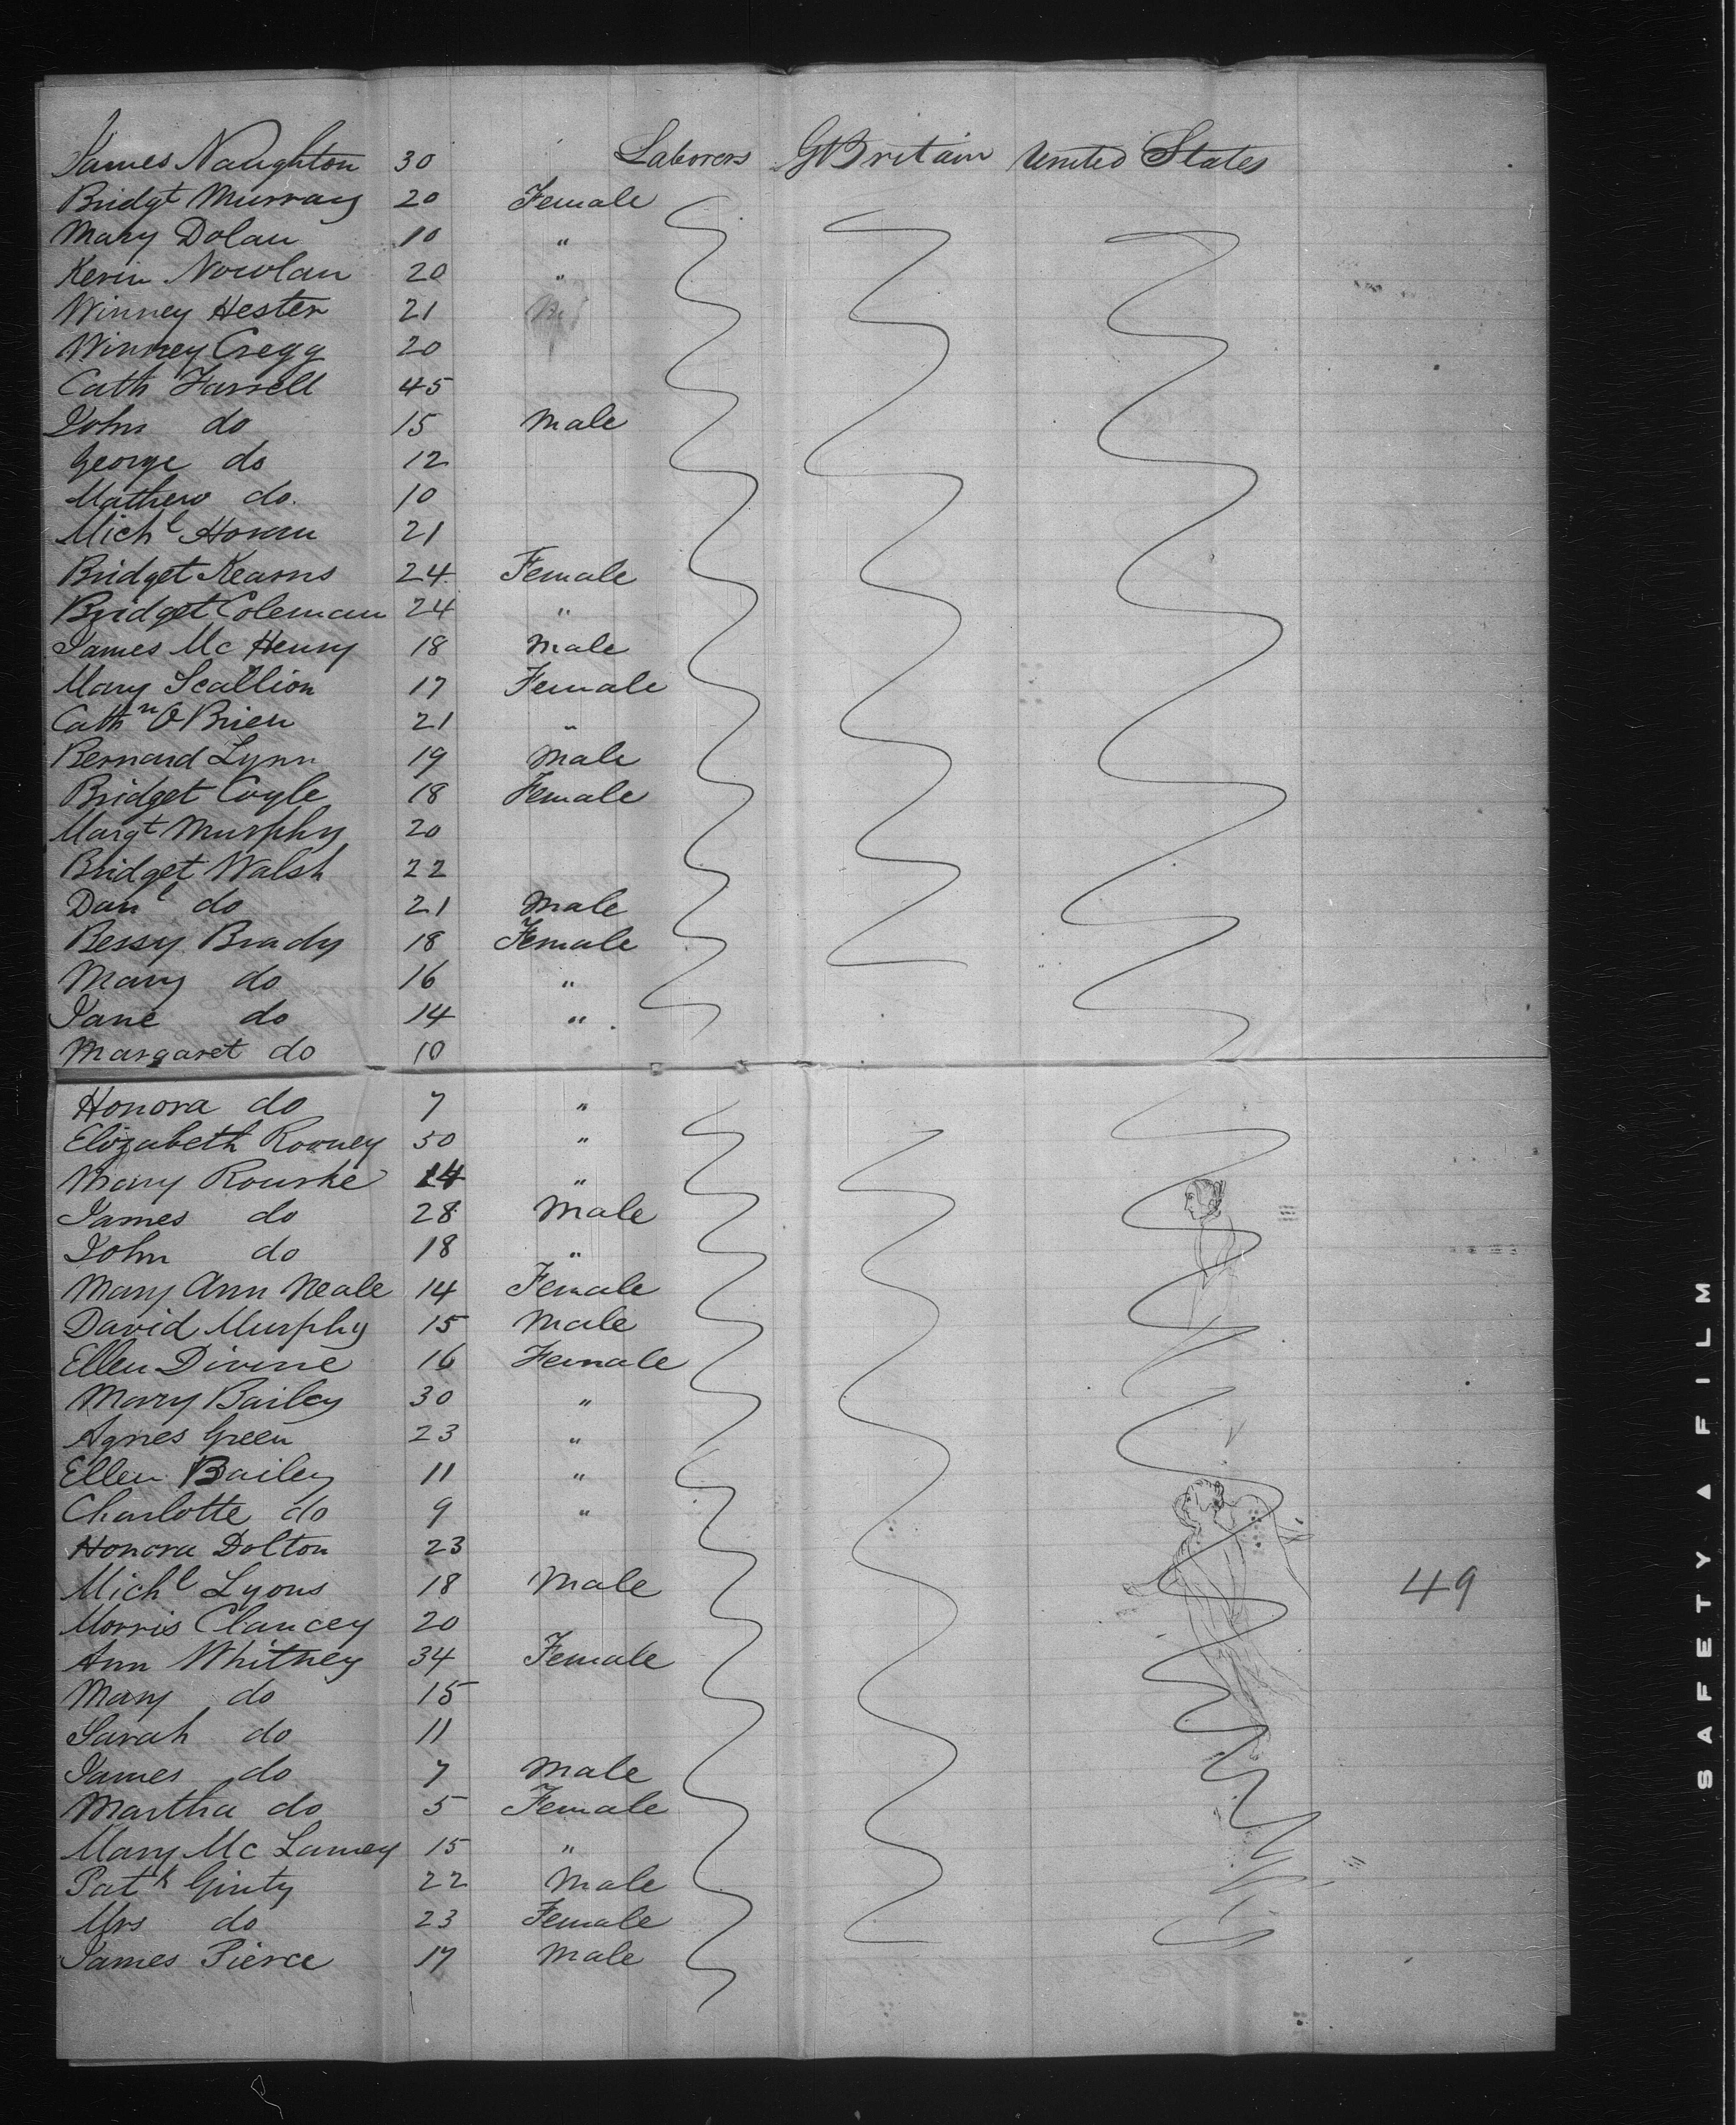 James Naughton 30 " Laborers Gt Britain United States
Bridgt Murray 20 Female
Mary Dolan 10 "
Kevin Nowlan 20 "
Winney Hester 21
Winney Cregg 20
Cath Farrell 45
John do 15 Male
George do 12
Mathew do. 10
Michl Horan 21
Bridget Kearns 24 Female
Bridget Coleman 24 "
James Mc Henry 18 Male
Mary Scallion 17 Female
Cathn O'Brien 21 "
Bernard Lynn 19 Male
Bridget Coyle 18 Female
Margt Murphy 20
Bridget Walsh 22
Danl do 21 Male
Bessy Brady 18 Female
Mary do 16 "
Jane do 14 "
Margaret do 10
Honora do 7 "
Elizabeth Rooney 50 "
Mary Rourke 14 "
James do 28 Male
John do 18 "
Mary Ann Neale 14 Female
David Murphy 15 Male
Ellen Divine 16 Female
Mary Bailey 30 "
Agnes Green 23 "
Ellen Bailey 11 "
Charlotte do 9 "
Honora Dolton 23
Michl Lyons 18 Male 49
Morris Clancey 20
Ann Whitney 34 Female
Mary do 15
Sarah do 11
James do 7 Male
Martha do 5 Female
Mary Mc Lamey 15 "
Patk Ginty 22 Male
Mrs do 23 Female
James Pierce 17 Male
SAFETY ▲ FILM